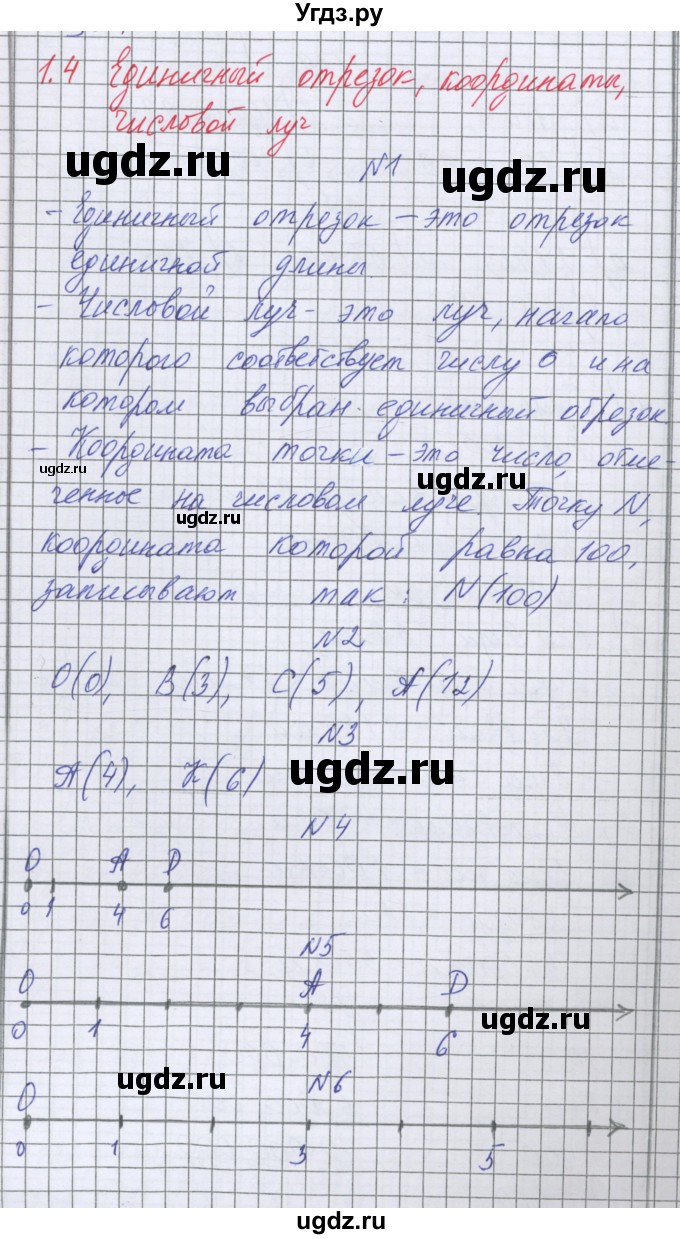 Угдз.ру
1.4 Единичный отрезок, координаты,
числовой луч
ugdz.ru
N1
ugdz.ru
- Единичный отрезок - это отрезок
единичной длины.
- Числовой луч - это луч, начало
которого соответствует числу 0 и на
котором выбран единичный отрезок
- Координата точки - это число, отме-
ugdz.ru
ugdz.ru
ченное на числовом луче. Точку N,
ugdz.ru
координата которой равна 100,
записывают так: N(100)
N2
O(0), B(3), C(5), A(12)
N3
A(4), K(6)
ugdz.ru
N4
O A D
0 1 4 6
N5
O A D
ugdz.ru
0 1 4 6
ugdz.ru
N6
O
0 1 3 5
ugdz.ru